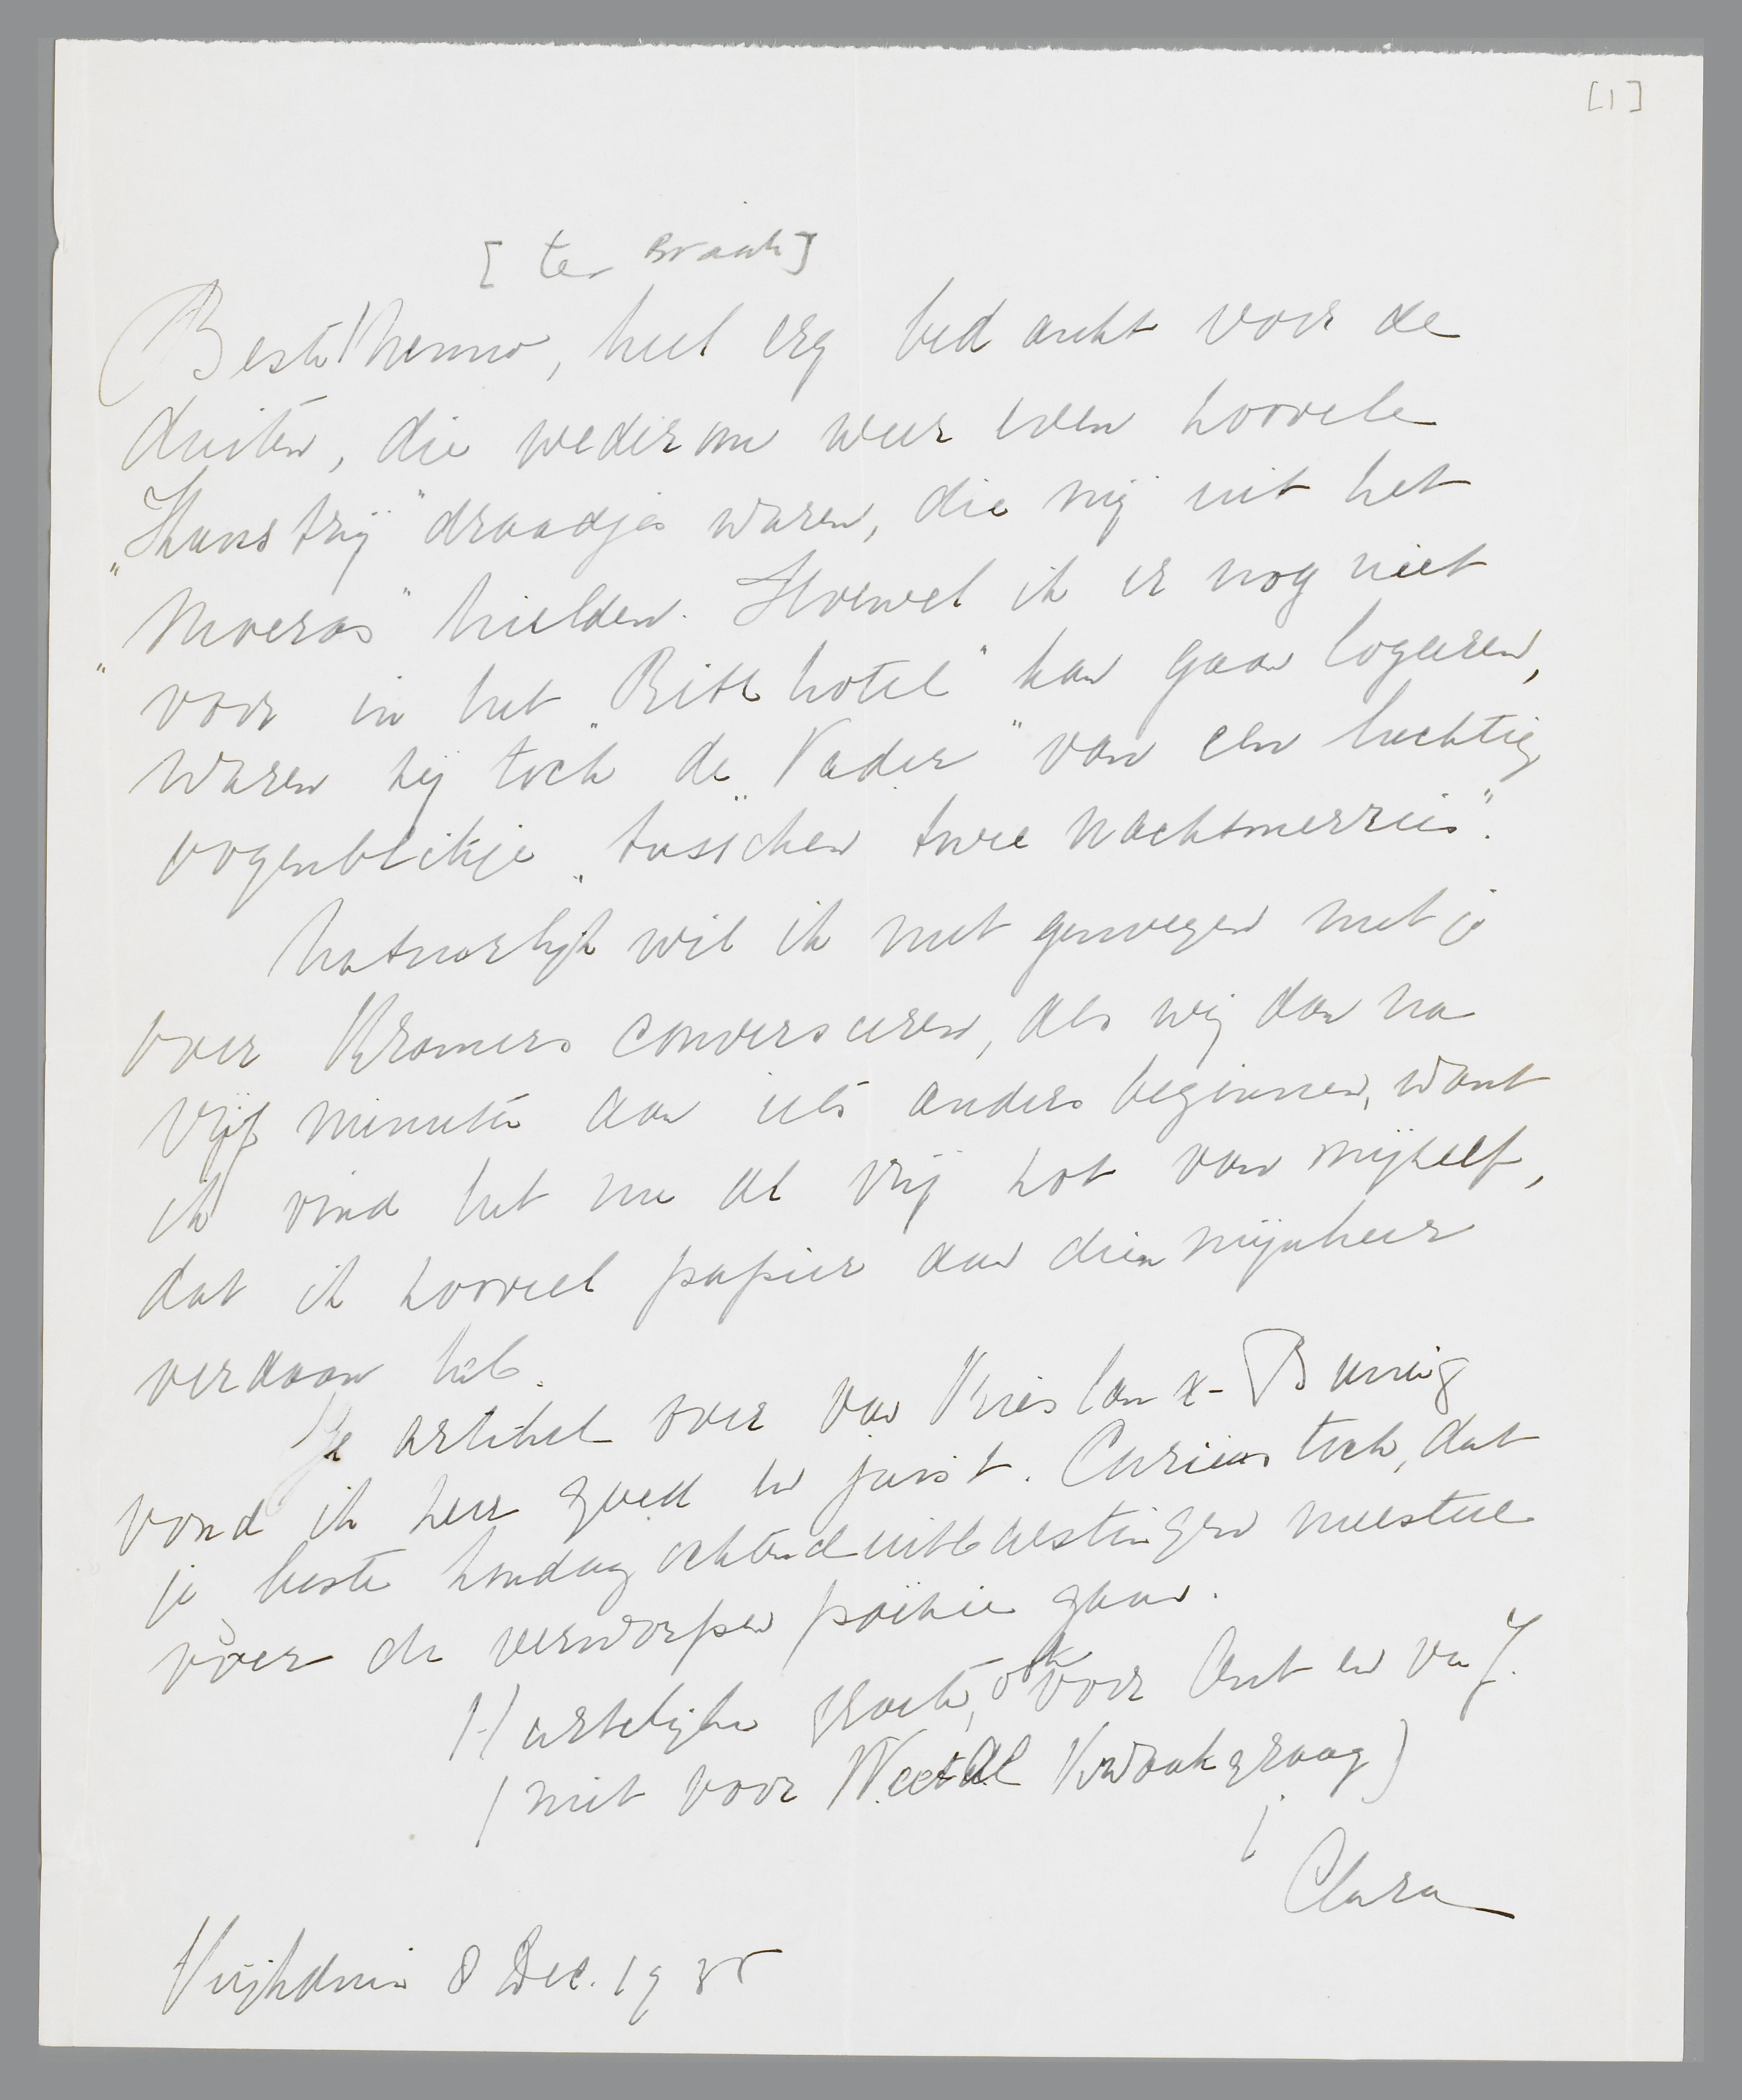 [1]
[ter Braak]
Beste Menno, heel erg bedankt voor de
duiten, die wederom weer even zoovele
„Hans trij" draadjes waren, die mij uit het
„Moeras" hielden. Hoewel ik er nog niet
voor in het „Ritz hotel" kan gaan logeeren,
waren zij toch de „Vader" van een luchtig
oogenblikje „tusschen twee nachtmerries".
Natuurlijk wil ik met genoegen met je
over Kramers converseeren, als wij dan na
vijf minuten aan iets anders beginnen, want
ik vind het nu al vrij zot van mijzelf,
dat ik zooveel papier aan dien mijnheer
verdaan heb.
Je artikel over van Vrieslan x- Buning
vond ik zeer goed en juist. Curieus toch, dat
je beste zondagochtenduitbarstingen meestal
over de verworpen poëzie gaan.
Hartelijke groeten, ook voor Ant en v.
(niet voor Kwaakgraag)
Clara
Vrijhduin 8 Dec. 1935